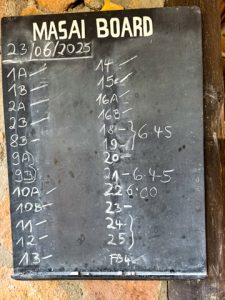 MASAI BOARD
23/06/2025
1A
1B
2A
2B
8B
9A
9B
10A
10B
11
12
13
14
15
16A
16B
18
19 } 6.45
20
21 - 6-4-5
22 6:00
23
24
25 }